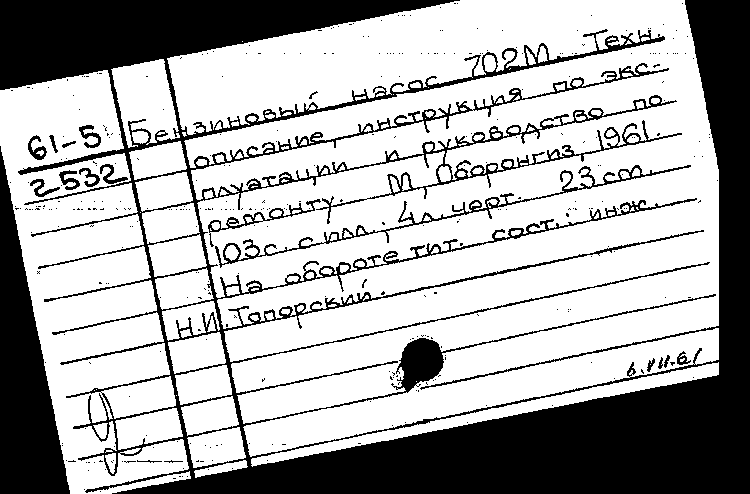 61-5 Бензиновый насос 702М. Техн.
2532 описание, инструкция по экс-
плуатации и руководство по
ремонту. М, Оборонгиз, 1961.
103с. с илл.; 4л. черт. 23 cm.
На обороте тит. сост.: инж.
Н.И. Топорский.
6.VII.61